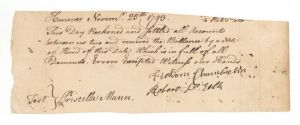 Hanover Novem.r 25th 1793
This Day Reckoned and Settled all Accounts
between us two and received the Ballance by a Note
of Hand of this Date Which is in full of all
Demands Errors Excepted Witness our Hands
Chamberlin
Robert
Test } Priscilla Mann.